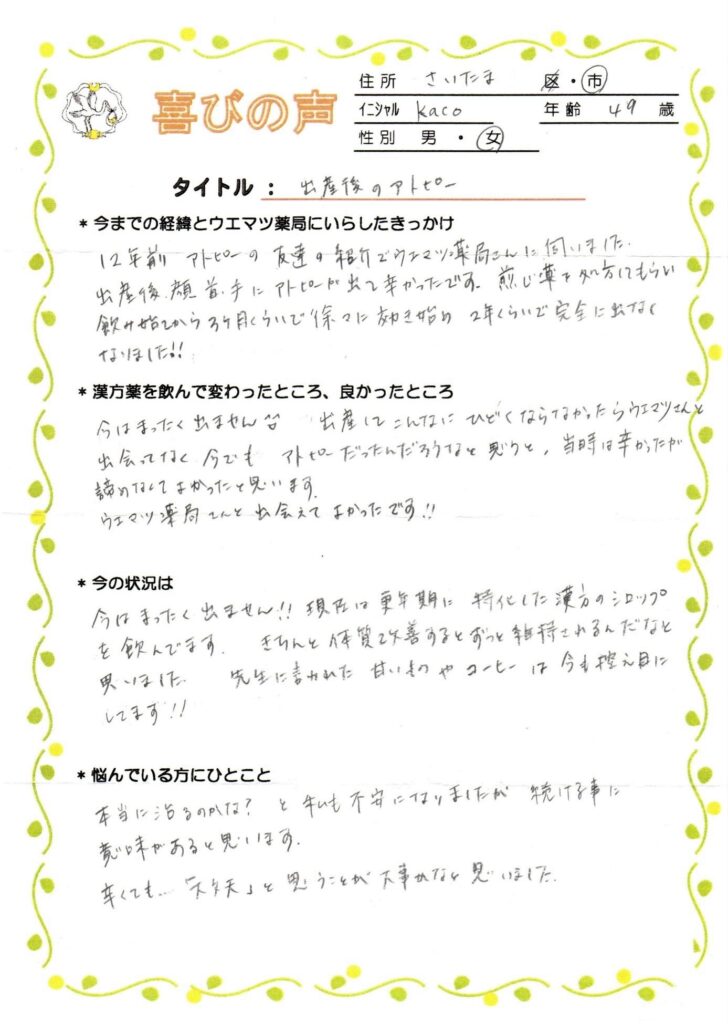 喜びの声
住所 さいたま 区・市
イニシャル kaco 年齢 49 歳
性別 男・女
タイトル： 出産後のアトピー
＊今までの経緯とウエマツ薬局にいらしたきっかけ
12年前 アトピーの友達の紹介でウエマツ薬局さんに伺いました.
出産後、顔、首、手にアトピーが出て辛かったです。煎じ薬を処方してもらい
飲み始めてから3ヶ月くらいで徐々に効き始め 2年くらいで完全に出なく
なりました!!
＊漢方薬を飲んで変わったところ、良かったところ
今はまったく出ません^^ 出産してこんなに ひどくならなかったらウエマツさんと
出会ってなく 今でも アトピーだったんだろうなと思うと、当時は辛かったが
諦めなくてよかったと思います.
ウエマツ薬局さんと出会えてよかったです!!
＊今の状況は
今はまったく出ません!! 現在は更年期に特化した漢方のシロップ
を飲んでます. きちんと体質改善するとずっと維持されるんだなと
思いました. 先生に言われた甘いものやコーヒーは今も控え目に
してます!!
＊悩んでいる方にひとこと
本当に治るのかな? と私も不安になりましたが 続ける事に
意味があると思います.
辛くても…「大丈夫」と思うことが大事かなと思いました.